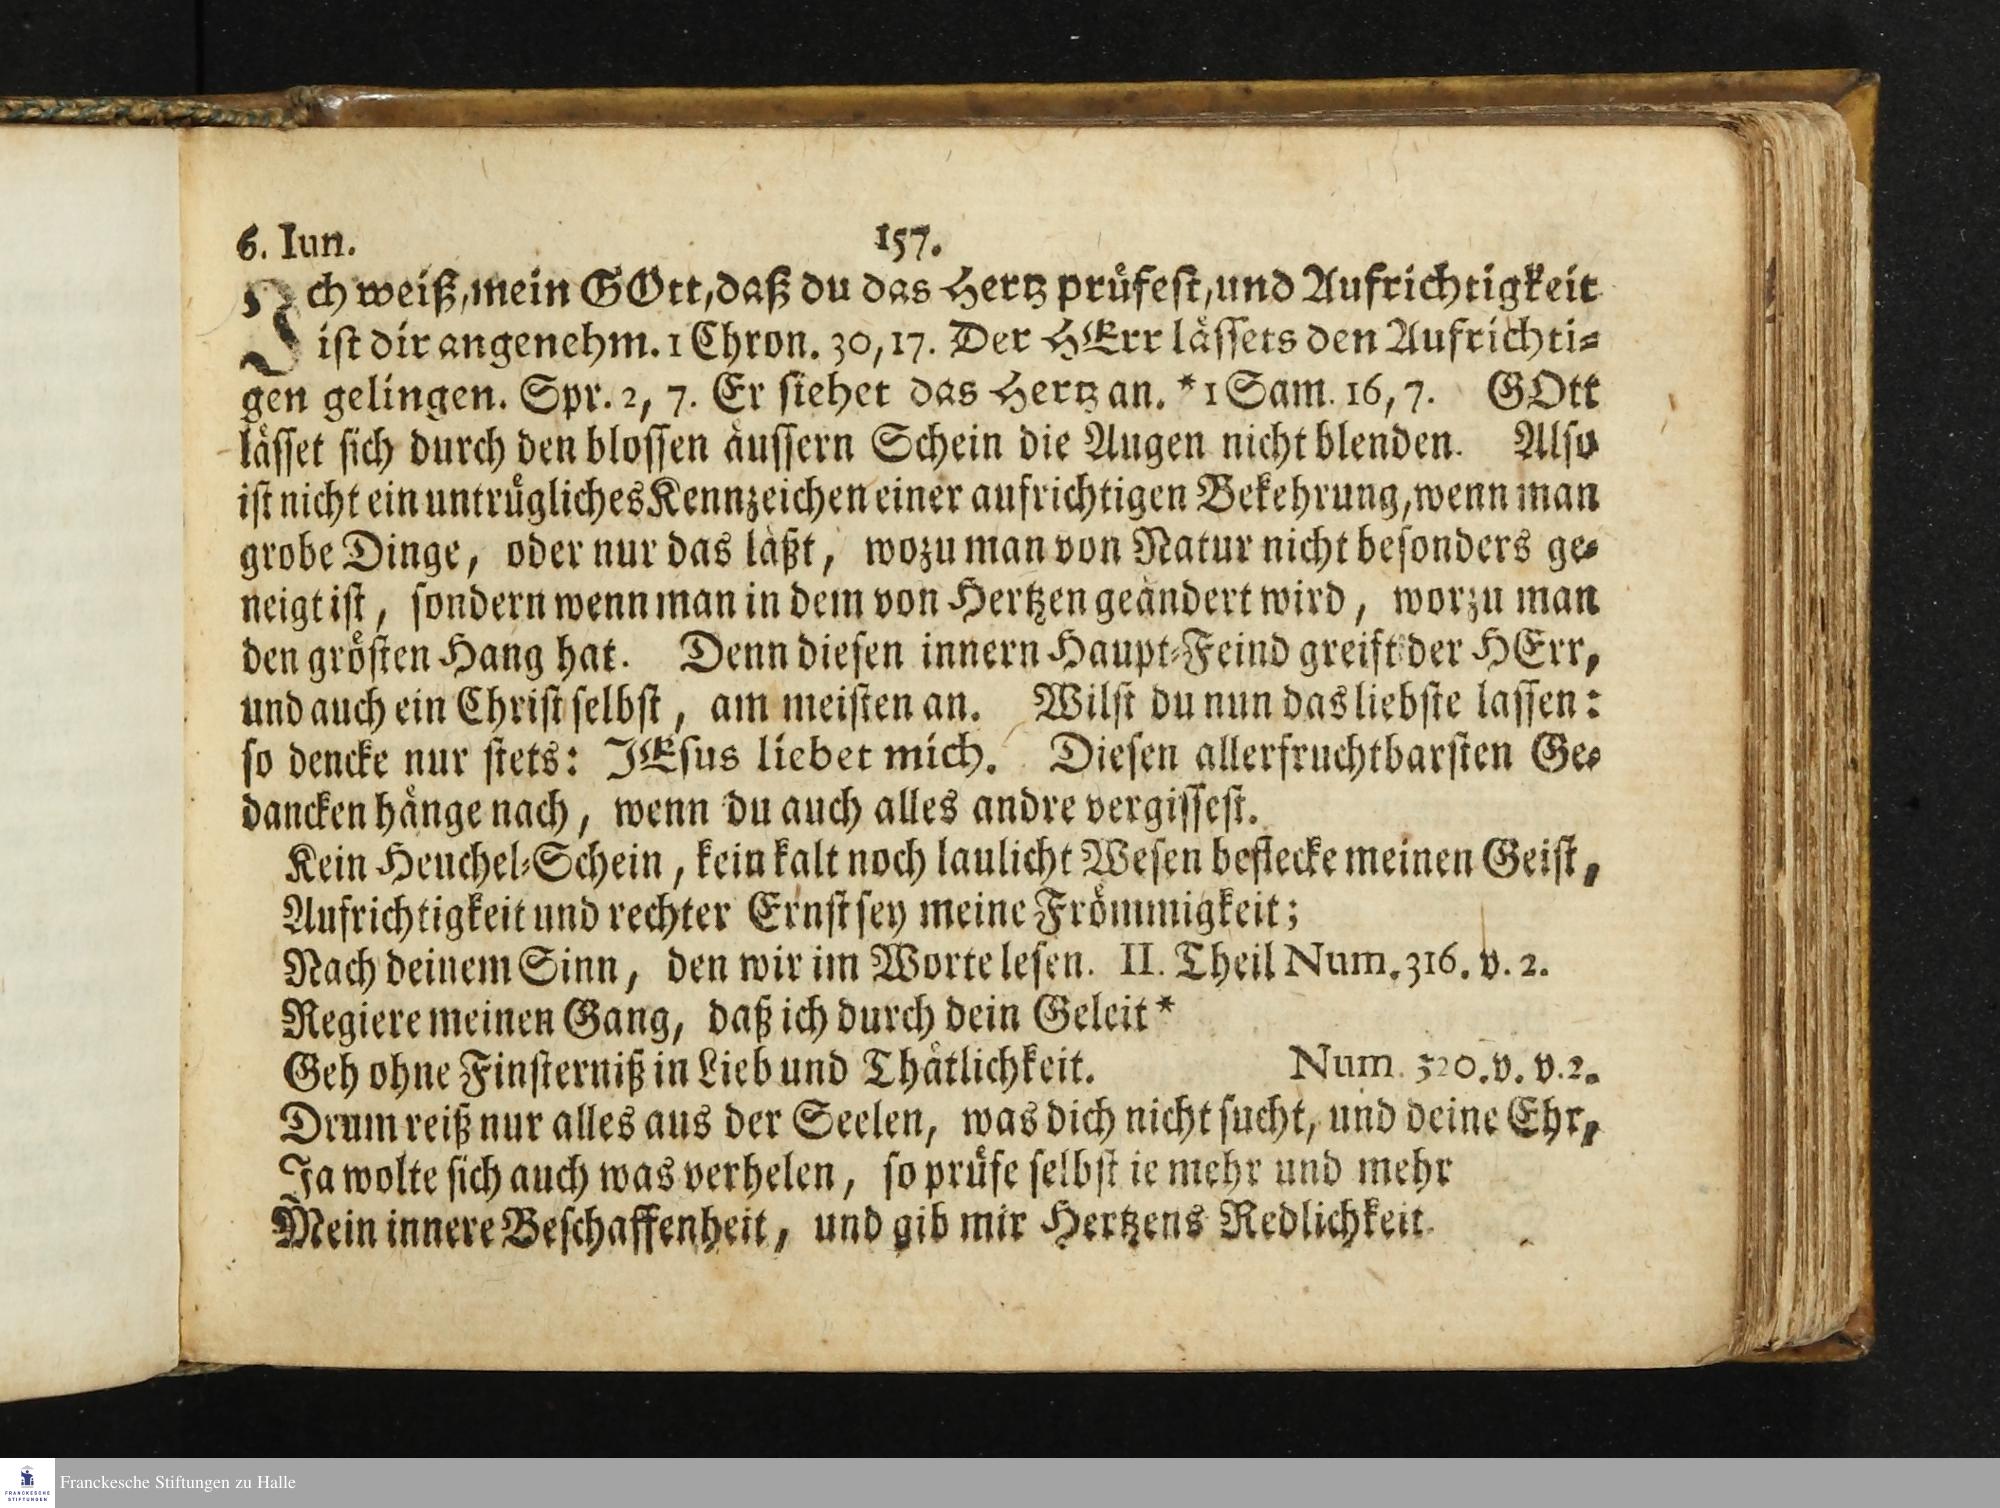 6. Iun. 157.
Ich weiß, mein GOtt, daß du das Hertz prüfest, und Aufrichtigkeit
ist dir angenehm. 1 Chron. 30, 17. Der HErr lässets den Aufrichti-
gen gelingen. Spr. 2, 7. Er siehet das Hertz an. *1 Sam. 16, 7. GOtt
lässet sich durch den blossen äussern Schein die Augen nicht blenden. Also
ist nicht ein untrügliches Kennzeichen einer aufrichtigen Bekehrung, wenn man
grobe Dinge, oder nur das läßt, wozu man von Natur nicht besonders ge-
neigt ist, sondern wenn man in dem von Hertzen geändert wird, worzu man
den grösten Hang hat. Denn diesen innern Haupt-Feind greift der HErr,
und auch ein Christ selbst, am meisten an. Wilst du nun das liebste lassen:
so dencke nur stets: JEsus liebet mich. Diesen allerfruchtbarsten Ge-
dancken hänge nach, wenn du auch alles andre vergissest.
Kein Heuchel-Schein, kein kalt noch laulicht Wesen beflecke meinen Geist,
Aufrichtigkeit und rechter Ernst sey meine Frömmigkeit;
Nach deinem Sinn, den wir im Worte lesen. II. Theil Num. 316. v. 2.
Regiere meinen Gang, daß ich durch dein Geleit*
Geh ohne Finsterniß in Lieb und Thätlichkeit. Num. 320. v. v. 2.
Drum reiß nur alles aus der Seelen, was dich nicht sucht, und deine Ehr,
Ja wolte sich auch was verhelen, so prüfe selbst ie mehr und mehr
Mein innere Beschaffenheit, und gib mir Hertzens Redlichkeit.
FRANCKESCHE
STIFTUNGEN
Franckesche Stiftungen zu Halle